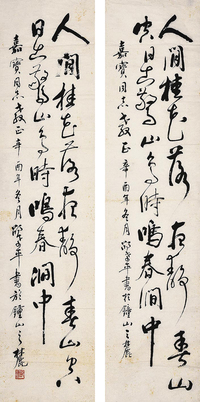 人閒桂花落夜靜春山
空月出驚山鳥時鳴春澗中
嘉寶同志教正辛酉年冬月書於鐘山之麓
人閒桂花落夜靜春山空
月出驚山鳥時鳴春澗中
嘉寶同志教正辛酉年冬月書於鐘山之麓